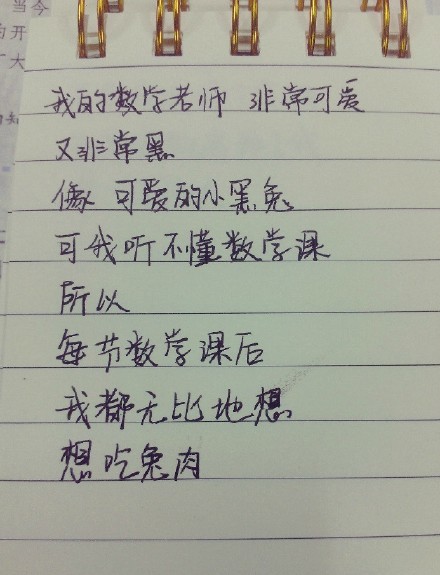 当今
的开
大
我的数学老师 非常可爱
又非常黑
像 可爱的小黑兔
可我听不懂数学课
所以
每节数学课后
我都无比地想
想吃兔肉